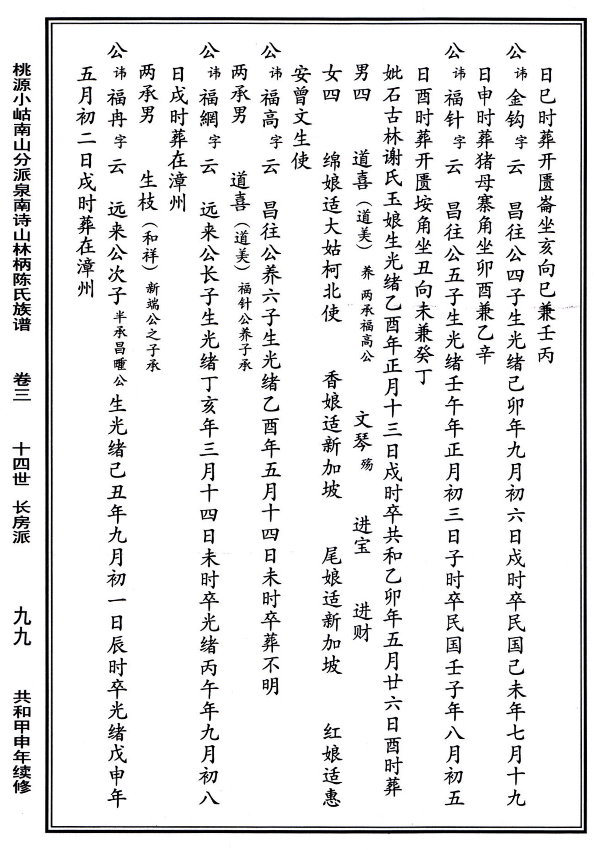 日巳时葬开匮崙坐亥向巳兼壬丙
公讳金钩字云 昌往公四子生光绪己卯年九月初六日戌时卒民国己未年七月十九
日申时葬猪母寨角坐卯酉兼乙辛
公讳福针字云 昌往公五子生光绪壬午年正月初三日子时卒民国壬子年八月初五
日酉时葬开匮埯角坐丑向未兼癸丁
妣石古林谢氏玉娘生光绪乙酉年正月十三日戌时卒共和乙卯年五月廿六日酉时葬
男四 道喜（道美）养 两承福高公 文琴 殇 进宝 进财
女四 绵娘适大姑柯北使 香娘适新加坡 尾娘适新加坡 红娘适惠
安曾文生使
公讳福高字云 昌往公养六子生光绪乙酉年五月十四日未时卒葬不明
两承男 道喜（道美）福针公养子承
公讳福網字云 远来公长子生光绪丁亥年三月十四日未时卒光绪丙午年九月初八
日戌时葬在漳州
两承男 生枝（和祥）新端公之子承
公讳福冉字云 远来公次子 半承昌畽公 生光绪己丑年九月初一日辰时卒光绪戊申年
五月初二日戌时葬在漳州
桃源小岵南山分派泉南诗山林柄陈氏族谱 卷三 十四世 长房派 九九 共和甲申年续修